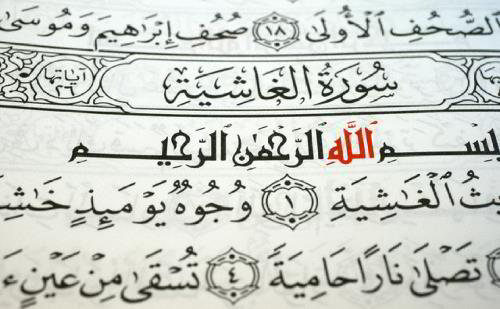 الصُّحُفِ الْأُولَىٰ ١٨ صُحُفِ إِبْرَاهِيمَ وَمُوسَىٰ
سُورَةُ الْغَاشِيَةِ آيَاتُهَا ٢٦
بِسْمِ اللَّهِ الرَّحْمَٰنِ الرَّحِيمِ
الْغَاشِيَةِ ١ وُجُوهٌ يَوْمَئِذٍ
تَصْلَىٰ نَارًا حَامِيَةً ٤ تُسْقَىٰ مِنْ عَيْنٍ